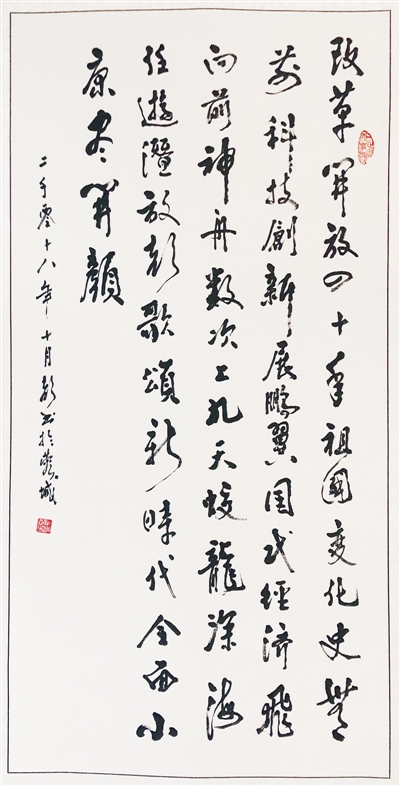 改革開放四十年祖國變化史無
前科技創新展鵬翼國民經濟飛
向前神舟數次上九天蛟龍深海
任遊潛放聲歌頌新時代全面小
康尽開顏
二千零十八年十月書於城